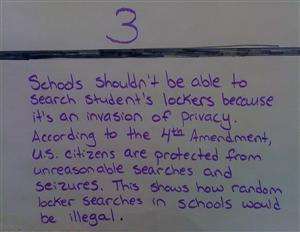 3
Schools shouldn't be able to
search student's lockers because
it's an invasion of privacy.
According to the 4th Amendment,
U.S. citizens are protected from
unreasonable searches and
seizures. This shows how random
locker searches in schools would
be illegal.